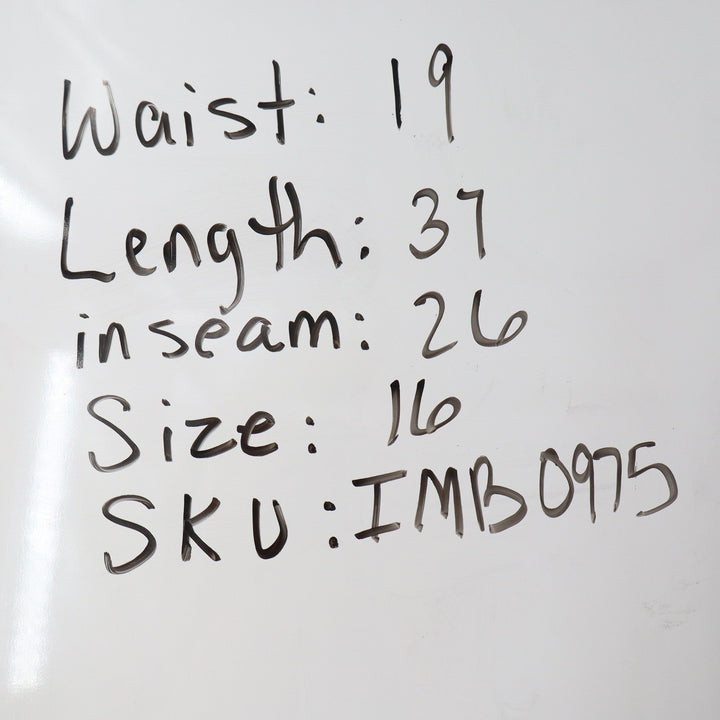 Waist: 19
Length: 37
inseam: 26
Size: 16
SKU: IMB0975